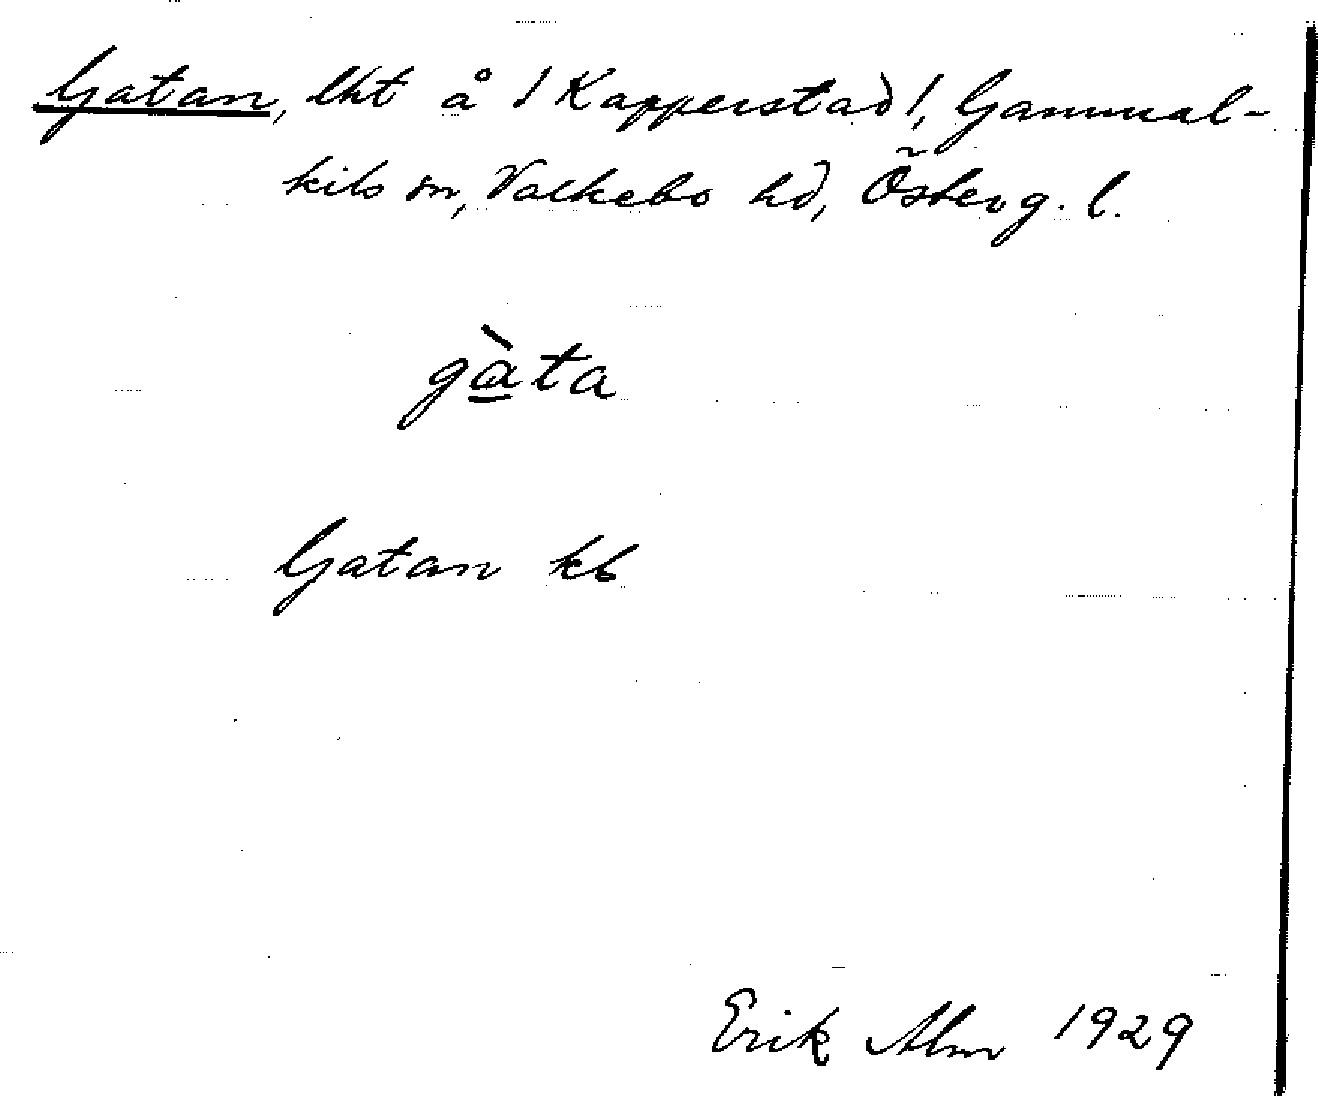 Gatan, lht å /Kapperstad/, Gammal-
kils sn, Valkebo hd, Österg. l.
gàta
Gatan kb
Erik Alm 1929